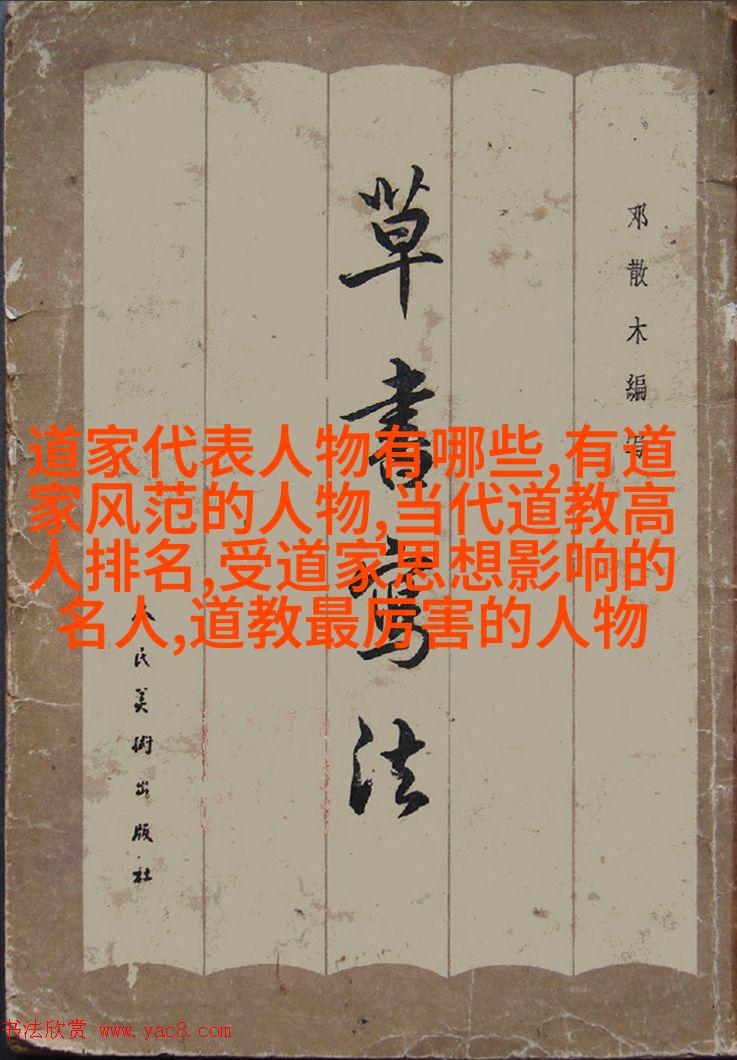 草書寫法
邓散木編寫
人民美術出版社
道家代表人物有哪些,有道
家风范的人物,当代道教高
人排名,受道家思想影响的
名人,道教最厉害的人物
书法欣赏 www.yac8.com